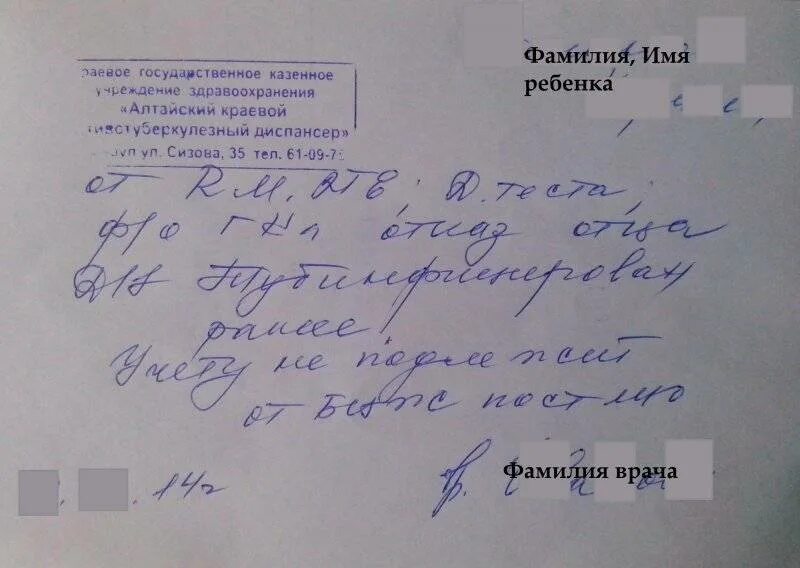 Фамилия, Имя
ребенка
раевое государственное казенное
учреждение здравоохранения
«Алтайский краевой
тивотуберкулезный диспансер»
ул. Сизова, 35 тел. 61-09-7
от RM, ДТЕ; Д. теста,
ф/о ГКл отказ отца
Д/З Тубинфицирован
ранее
Учету не подлежит
от БЦЖ пост. м/о
.14г
Фамилия врача